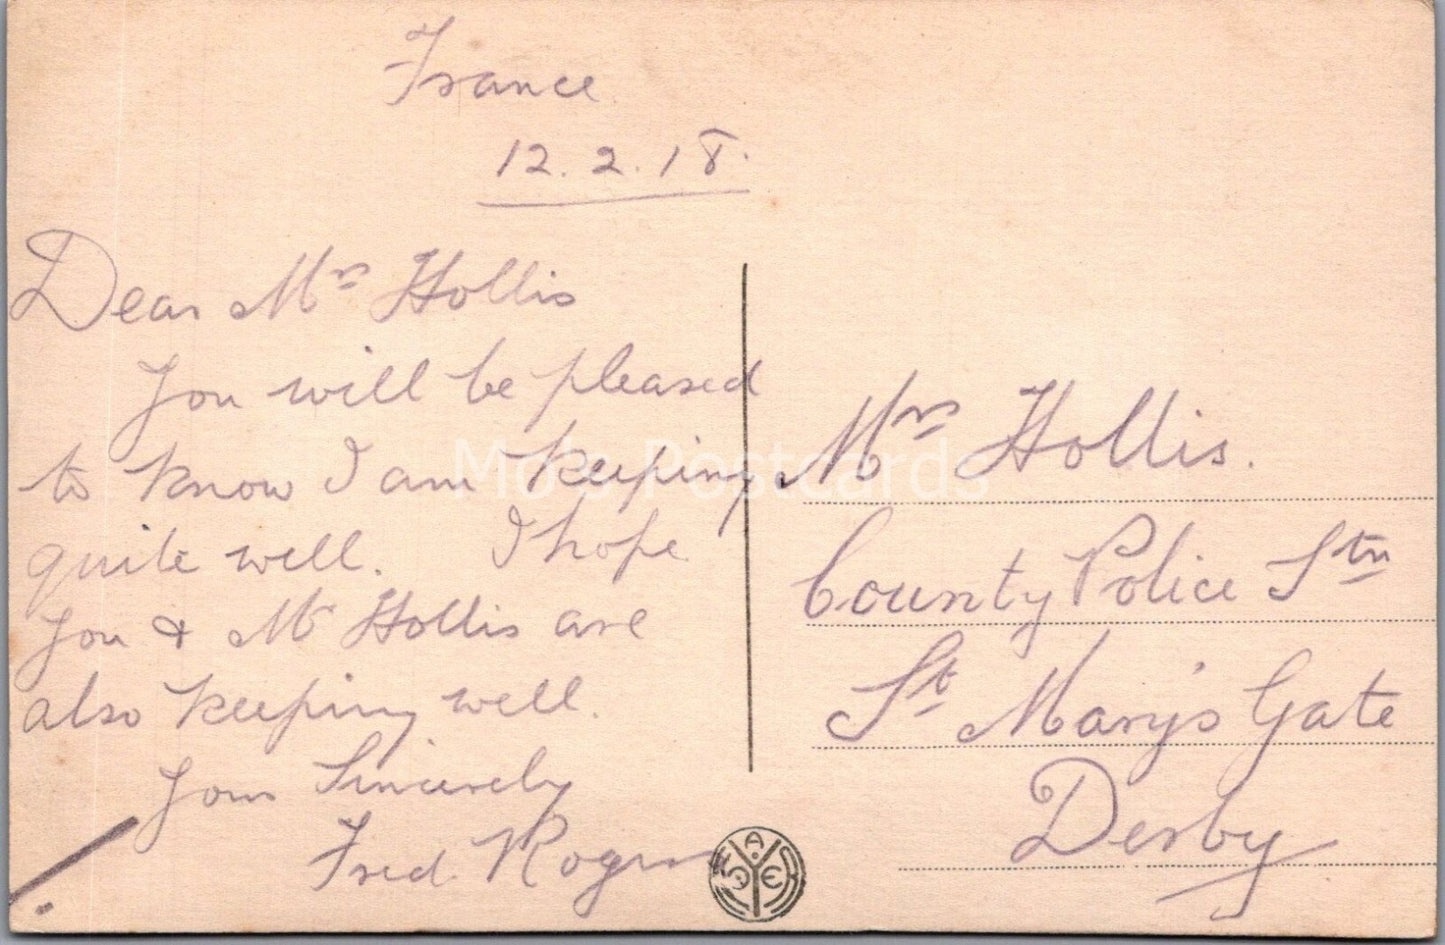 France
12.2.18.
Dear Mrs Hollis
You will be pleased
to know I am keeping
quite well. I hope
you & Mr Hollis are
also keeping well.
Yours Sincerely
Fred Rogers
Mrs Hollis.
County Police Stn
St Mary's Gate
Derby
Mo's Postcards